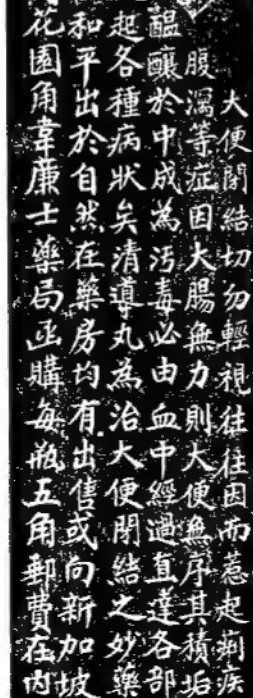 大便閉結切勿輕視往往因而惹起痢疾
腹瀉等症因大腸無力則大便無序其積垢
醞釀於中成為污毒必由血中經過直達各部
起各種病狀矣清導丸為治大便閉結之妙藥
和平出於自然在藥房均有出售或向新加坡
花園角韋廉士藥局函購每瓶五角郵費在內